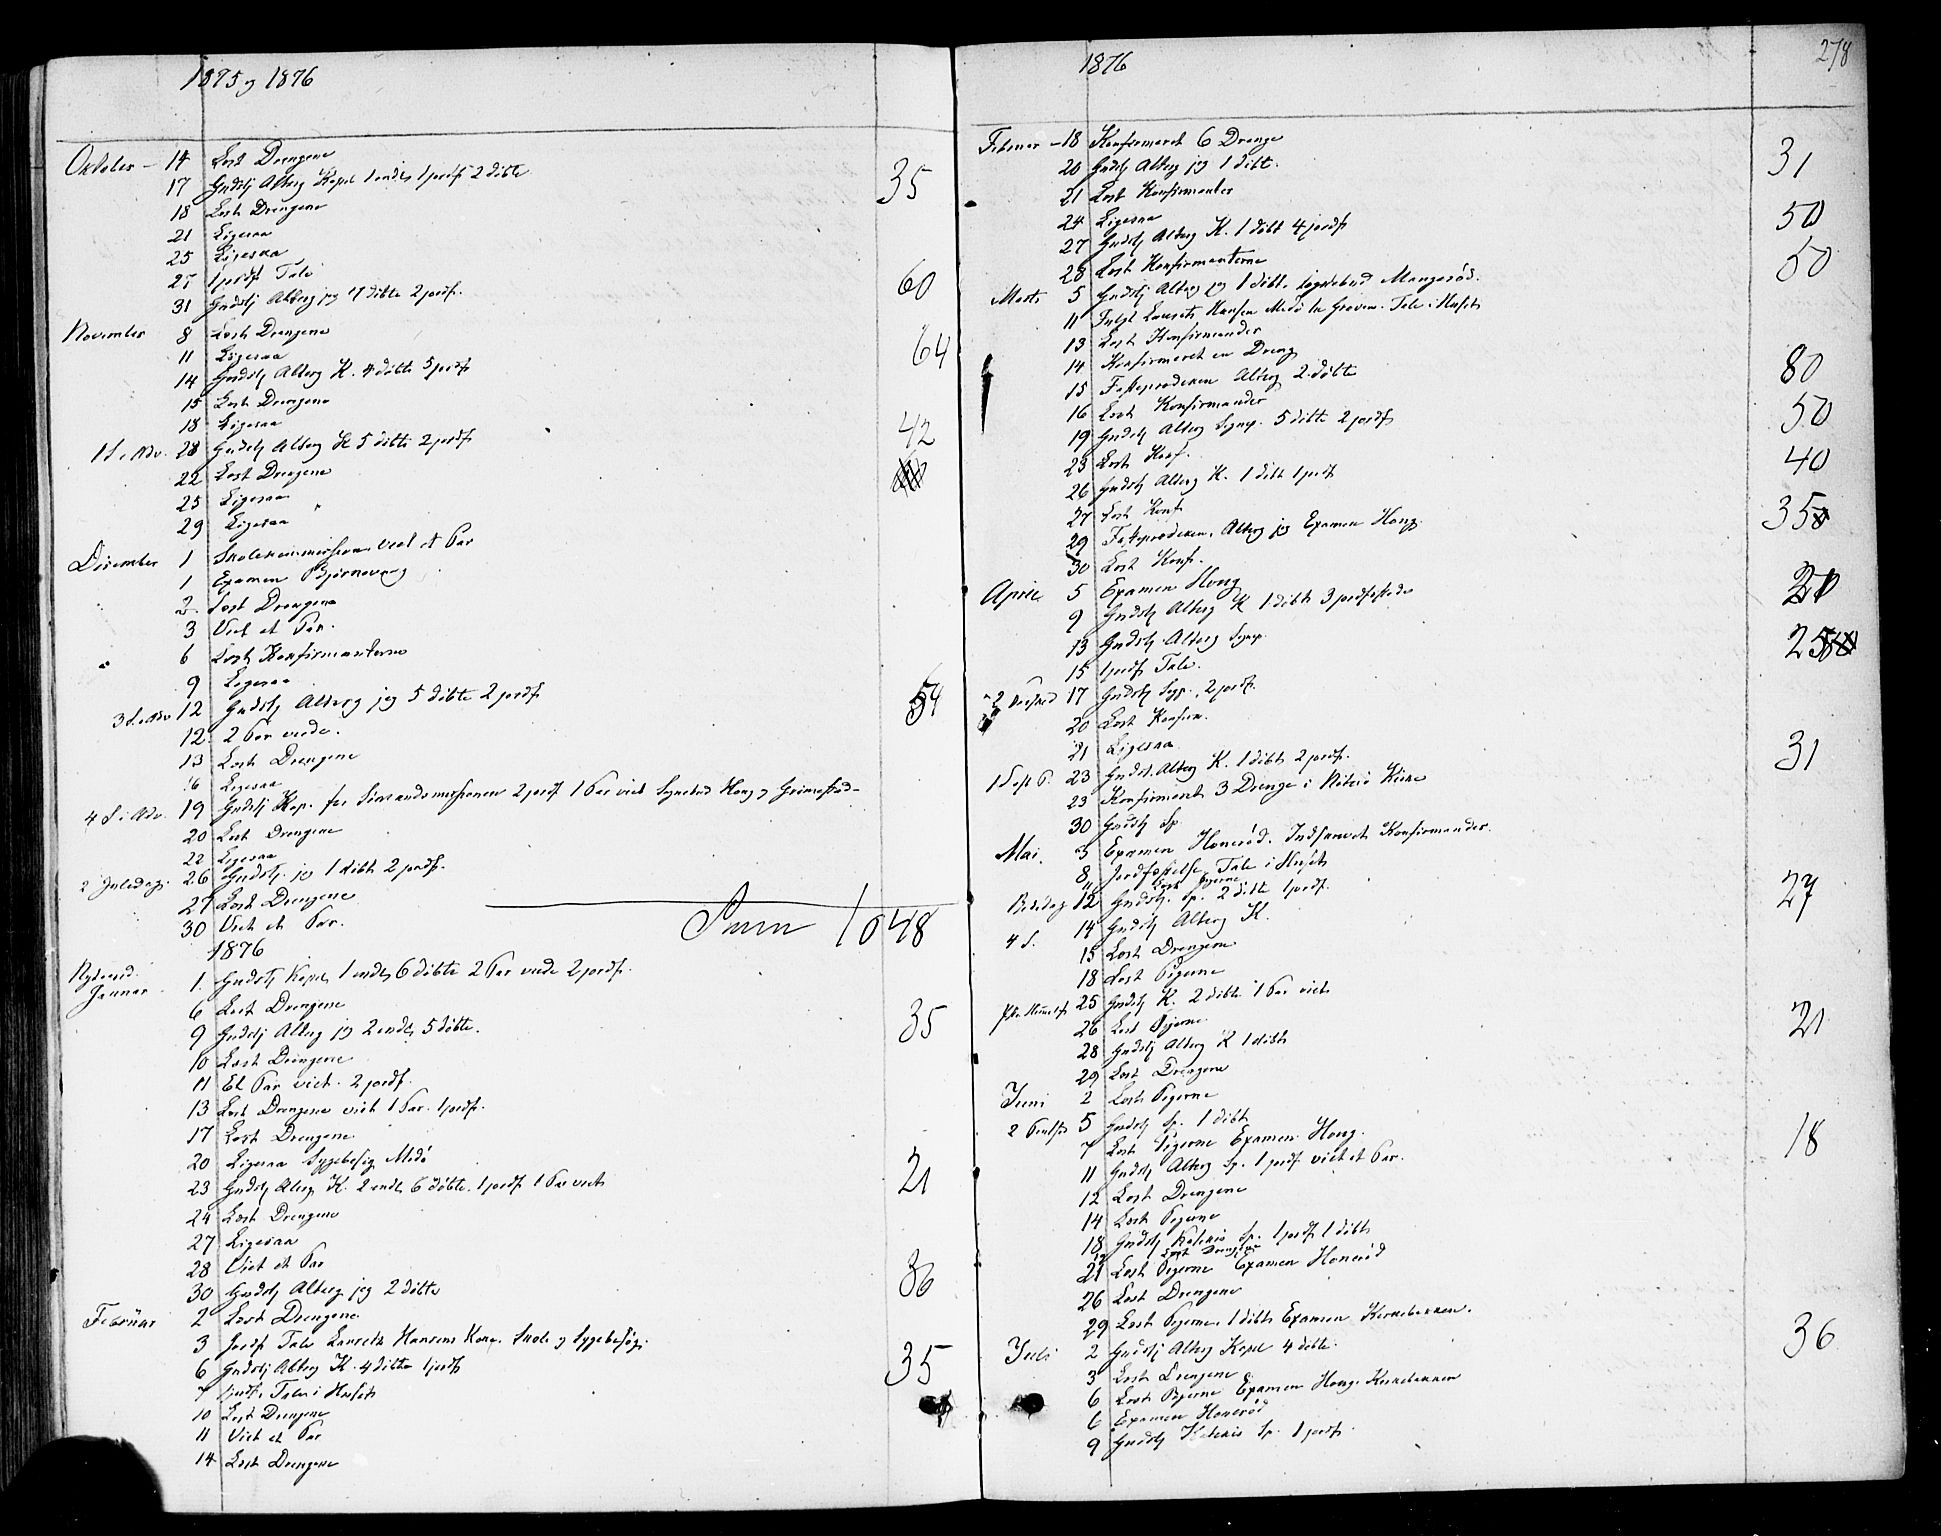 1875 og 1876
Oktober - 14 Læst Drengene
17 Gudstj Altberg Kapel 1 indl 1 jordf 2 døbte 35
18 Læst Drengene
21 Ligesaa
25 Ligesaa
27 1 jordf Tale
31 Gudstj Altberg jeg 4 døbte 2 jordf. 60
November 8 Læst Drengene
11 Ligesaa 64
14 Gudstj Altberg K. 4 døbte 5 jordf
15 Læst Drengene
18 Ligesaa 42
1 S. i Adv. 28 Gudstj Altberg K 5 døbte 2 jordf
22 Læst Drengene
25 Ligesaa
29 Ligesaa
December 1 Skolekommission. Viet et Par
1 Examen Bjørnevaag
2 Læst Drengene
3 Viet et Par.
6 Læst Konfirmanterne
9 Ligesaa
3 S. i Adv 12 Gudstj Altberg jeg 5 døbte 2 jordf 54
12 2 Par viede.
13 Læst Drengene
16 Ligesaa
4 S i Adv. 19 Gudstj Kap. for Sømandsmissionen 2 jordf 1 Par viet Sognebud Hong og Grimestad
20 Læst Drengene
22 Ligesaa
2 Juledag. 26 Gudstj. jeg 1 døbt 2 jordf.
27 Læst Drengene
30 Viet et Par. Sum 1048
1876
Nytaarsd.
Januar. 1. Gudstj Kapel 1 indl 6 døbte 2 Par viede 2 jordf.
6 Læst Drengene
9 Gudstj Altberg jeg 2 indl 5 døbte. 35
10 Læst Drengene
11 Et Par viet. 2 jordf.
13 Læst Drengene viet 1 Par. 1 jordf.
17 Læst Drengene
20 Ligesaa Sygebesøg Medø
23 Gudstj Altberg K. 2 indl 6 døbte. 1 jordf 1 Par viet 21
24 Læst Drengene
27 Ligesaa
28 Viet et Par
30 Gudstj Altberg jeg 2 døbte 36
Februar 2 Læst Drengene
3 Jordf Tale Lauritz Hansens Kone. Skole og Sygebesøg.
6 Gudstj Altberg K. 4 døbte 1 jordf 35
7 1 jordf. Tale i Huset
10 Læst Drengene
11 Viet et Par
14 Læst Drengene
1876 278
Februar - 18 Konfirmeret 6 Drenge
20 Gudstj Altberg jeg 1 døbt. 31
21 Læst Konfirmanter
24 Ligesaa
27 Gudstj Altberg K. 1 døbt 4 jordf 50
28 Læst Konfirmanterne
Marts 5 Gudstj Altberg jeg 1 døbt. Sognebud Mangerød. 50
11 Fulgt Lauritz Hansen Medø til Graven. Tale i Huset
13 Læst Konfirmander
14 Konfirmeret en Dreng
15 Fasteprædiken Altberg 2 døbte 80
16 Læst Konfirmander
19 Gudstj Altberg Synp. 5 døbte 2 jordf 50
23 Læst Konf.
26 Gudstj Altberg K. 1 døbt 1 jordf 40
27 Læst Konf
29 Fasteprædiken. Altberg jeg Examen Hong. 35
30 Læst Konf.
April 5 Examen Hong
9 Gudstj Altberg K 1 døbt 3 jordfæstede
13 Gudstj. Altberg Synp. 25
15 1 jordf Tale.
2 Paaskd 17 Gudstj Syp. 2 jordf.
20 Læst Konfirm.
21 Ligesaa
1 S eft P. 23 Gudst. Altberg K. 1 døbt 2 jordf. 31
23 Konfirmeret 3 Drenge i Nøterø Kirke
30 Gudstj Sp
Mai. 3 Examen Honerød. Indskrevet Konfirmander.
8 Jordfæstelse Tale i Huset
11 Læst Pigerne
Bededag 12 Gudstj. Sp. 2 døbte 1 jordf. 27
4 S. 14 Gudstj Altberg K.
15 Læst Drengene
18 Læst Pigerne
Kr. Himmelf 25 Gudstj K. 2 døbte 1 Par viet
26 Læst Pigerne 21
28 Gudstj Altberg K 1 døbt
29 Læst Drengene
Juni 2 Læst Pigerne
2 Pintsd 5 Gudstj Sp. 1 døbt
7 Læst Pigerne Examen Hong. 18
11 Gudstj Altberg Sp. 1 jordf viet et Par.
12 Læst Drengene
14 Læst Pigerne
18 Gudstj Katekis Sp. 1 jordf 1 døbt
19 Læst Drengene
21 Læst Pigerne Examen Honerød
26 Læst Drengene
29 Læst Pigerne, 1 døbt Examen Kirkebakken.
Juli 2 Gudstj Altberg Kapel 4 døbte. 36
3 Læst Drengene
6 Læst Pigerne Examen Hong. Kirkebakken
6 Examen Honerød
9 Gudstj Katekis Sp. 1 jordf.